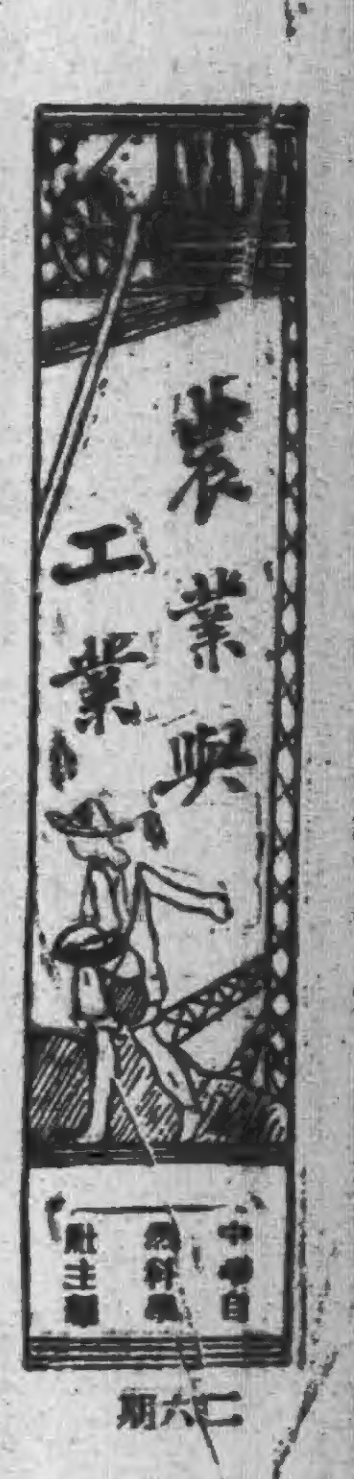 農業與
工業
中華自
然科學
社主編
二六期